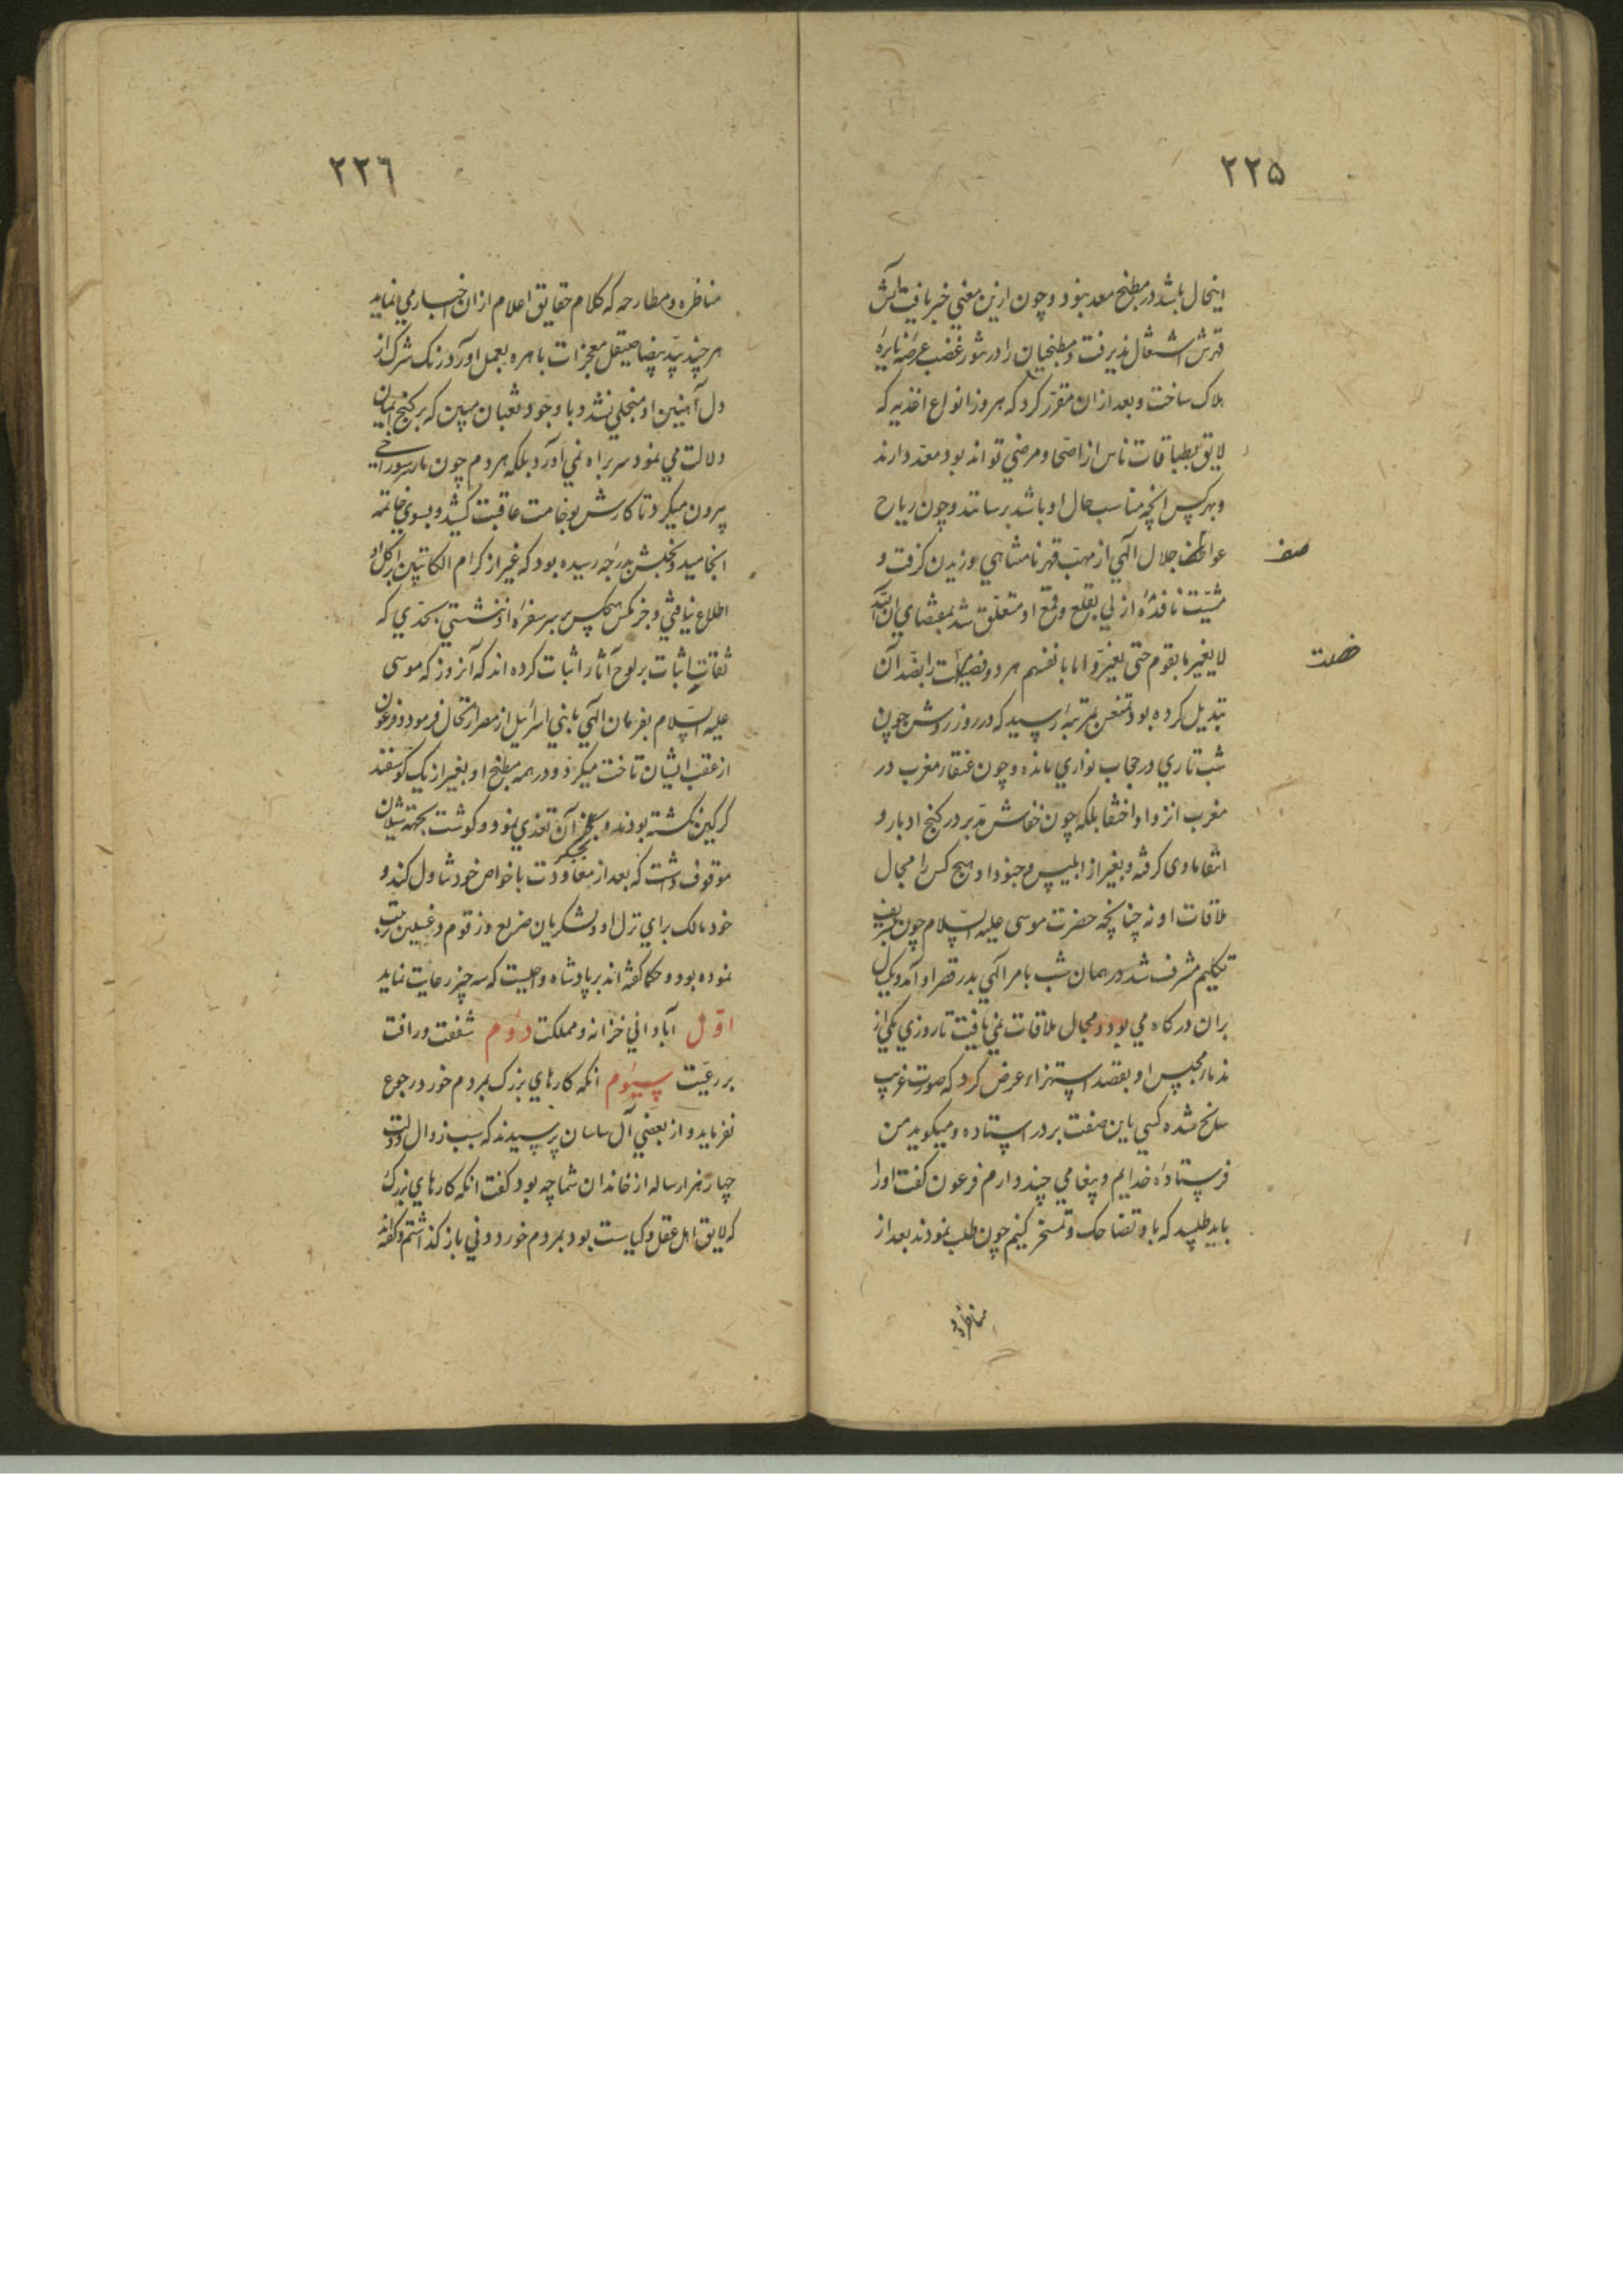 ٢٢٥
اینحال باشد در مطبخ معد نبود و چون ازین معنی خبر یافت آتش
قهرش اشتعال پذیرفت و مطبخیان را در تنور غضب عرضه نایرهٔ
هلاک ساخت و بعد از ان مقرّر کرد که هر روز انواع اغذیه که
لایق بطباقات ناس از اصحّا و مرضی تواند بود معدّ دارند
و بهر کس انچه مناسب حال او باشد برسانند و چون ریاح
عواطف جلال الهی از مهبّ قهر نامتناهی وزیدن کرفت و
صف
مشیّت نافذهٔ ازلی بقلع و قمع او متعلّق شد بمقتضای ان الله
لا یغیر ما بقوم حتی یغیّروا ما بانفسهم هر دو فضیلت را بضدّ آن
خصلت
تبدیل کرده بود تمنعش بمرتبهٔ رسید که در روز روشن چون
شب تاری در حجاب تواری مانده و چون عنقاء مغرب در
مغرب انزوا و اختفا بلکه چون خفاش مدبر در کنج ادبار و
اشقا ماوی کرفته و بغیر از ابلیس و جنود او هیچ کس را مجال
ملاقات او نه چنانچه حضرت موسی علیه السّلام چون بتشریف
تکلیم مشرف شد در همان شب بامر الهی بدر قصر او آمد و یکسال
بران درکاه می بود و مجال ملاقات نمی یافت تا روزی یکی از
ندماء مجلس او بقصد استهزاء عرض کرد که صورت غریب
سانح شده کسی باین صفت بر در استاده و میکوید من
فرستادهٔ خدایم و پیغامی چند دارم فرعون کفت اورا
باید طلبید که با و تضاحک و تمسخر کنیم چون طلب نمودند بعد از
مناظره و
٢٢٦
مناظره و مطارحه که کلام حقایق اعلام از ان اخبار می نماید
هر چند ید بیضا صیقل معجزات باهره بعمل اورد زنک شرک از
دل آهنین او منجلی نشد و با وجود ثعبان مبین که بر کنج ایمان
دلالت می نمود سر براه نمی آورد بلکه هر دم چون مار سر سوراخی
بیرون میکرد تا کارش بوخامت عاقبت کشید و بسوئ خاتمه
انجامید و بخلش بدرجه رسیده بود که غیر از کرام الکاتبین بر اکل او
اطلاع نیافتی و جز مکس هیچکس بر سر سفرهٔ او ننشستی بحدّی که
ثقات اثبات بر لوح آثار اثبات کرده اند که آنروز که موسی
علیه السّلام بفرمان الهی با بنی اسرائیل از مصر ارتحال فرمود و فرعون
از عقب ایشان تاخت میکرد و در همه مطبخ او بغیر از یک کوسفند
کرکین نکشته بودند و بجکر آن تغذی نمود و کوشت بجهته شیلان
بجکر
موقوف داشت که بعد از معاودت با خواص خود تناول کند و
خود مالک برای نزل او و لشکریان ضریع و زقوم و غسلین مرتب
نموده بود و حکما کفته اند بر پادشاه واجبست که سه چیز رعایت نماید
اوّل آبادانی خزانه و مملکت دوم شفقت و رافت
بر رعیّت سیوم انکه کارهای بزرک بمردم خورد رجوع
نفرماید و از بعضی آل ساسان پرسیدند که سبب زوال دولت
چهار هزار ساله از خاندان شما چه بود کفت انکه کارهای بزرک
که لایق اهل عقل و کیاست بود بمردم خورد و دنی باز کذاشتم و کفته اند